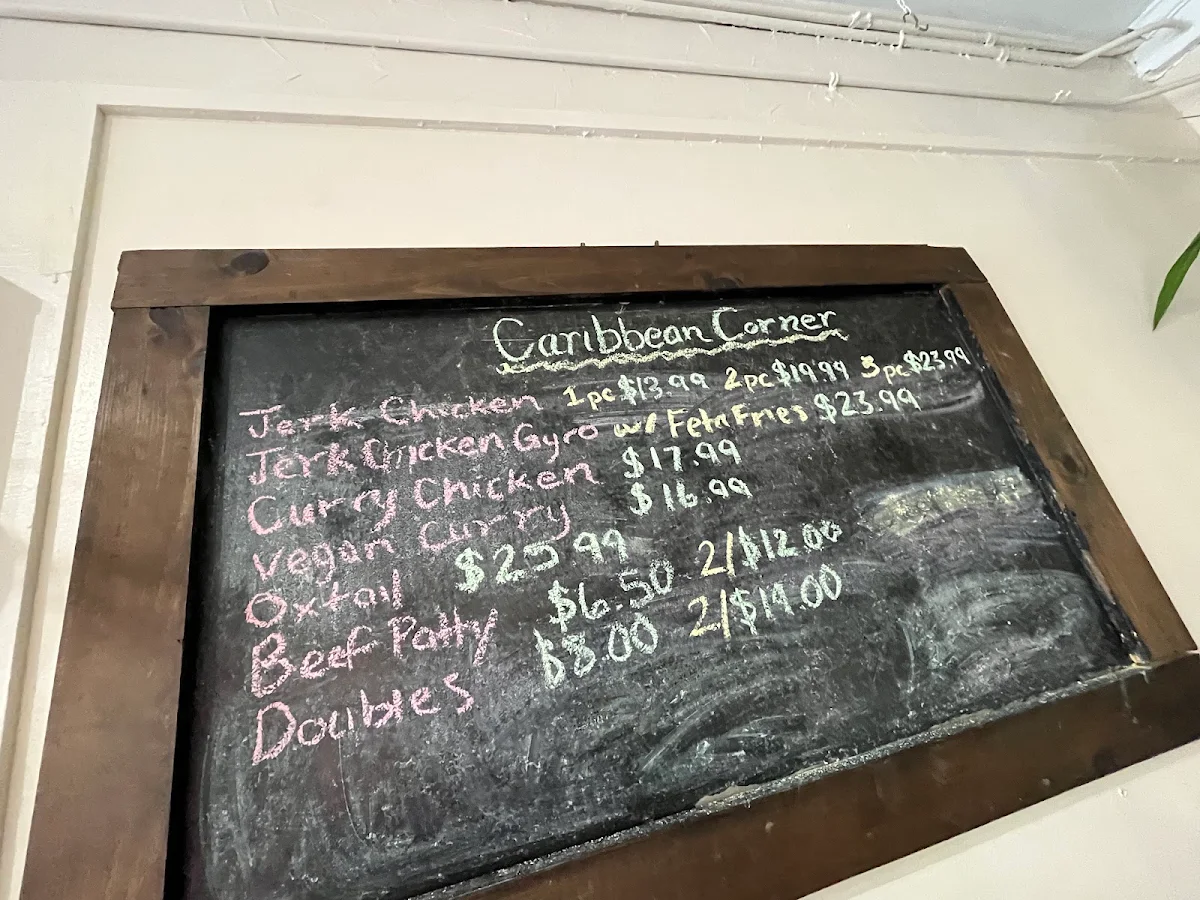 Caribbean Corner
Jerk Chicken 1pc $13.99 2pc $19.99 3pc $23.99
Jerk Chicken Gyro w/ Feta Fries $23.99
Curry Chicken $17.99
Vegan Curry $16.99
Oxtail $25.99
Beef Patty $6.50 2/$12.00
Doubles $8.00 2/$14.00